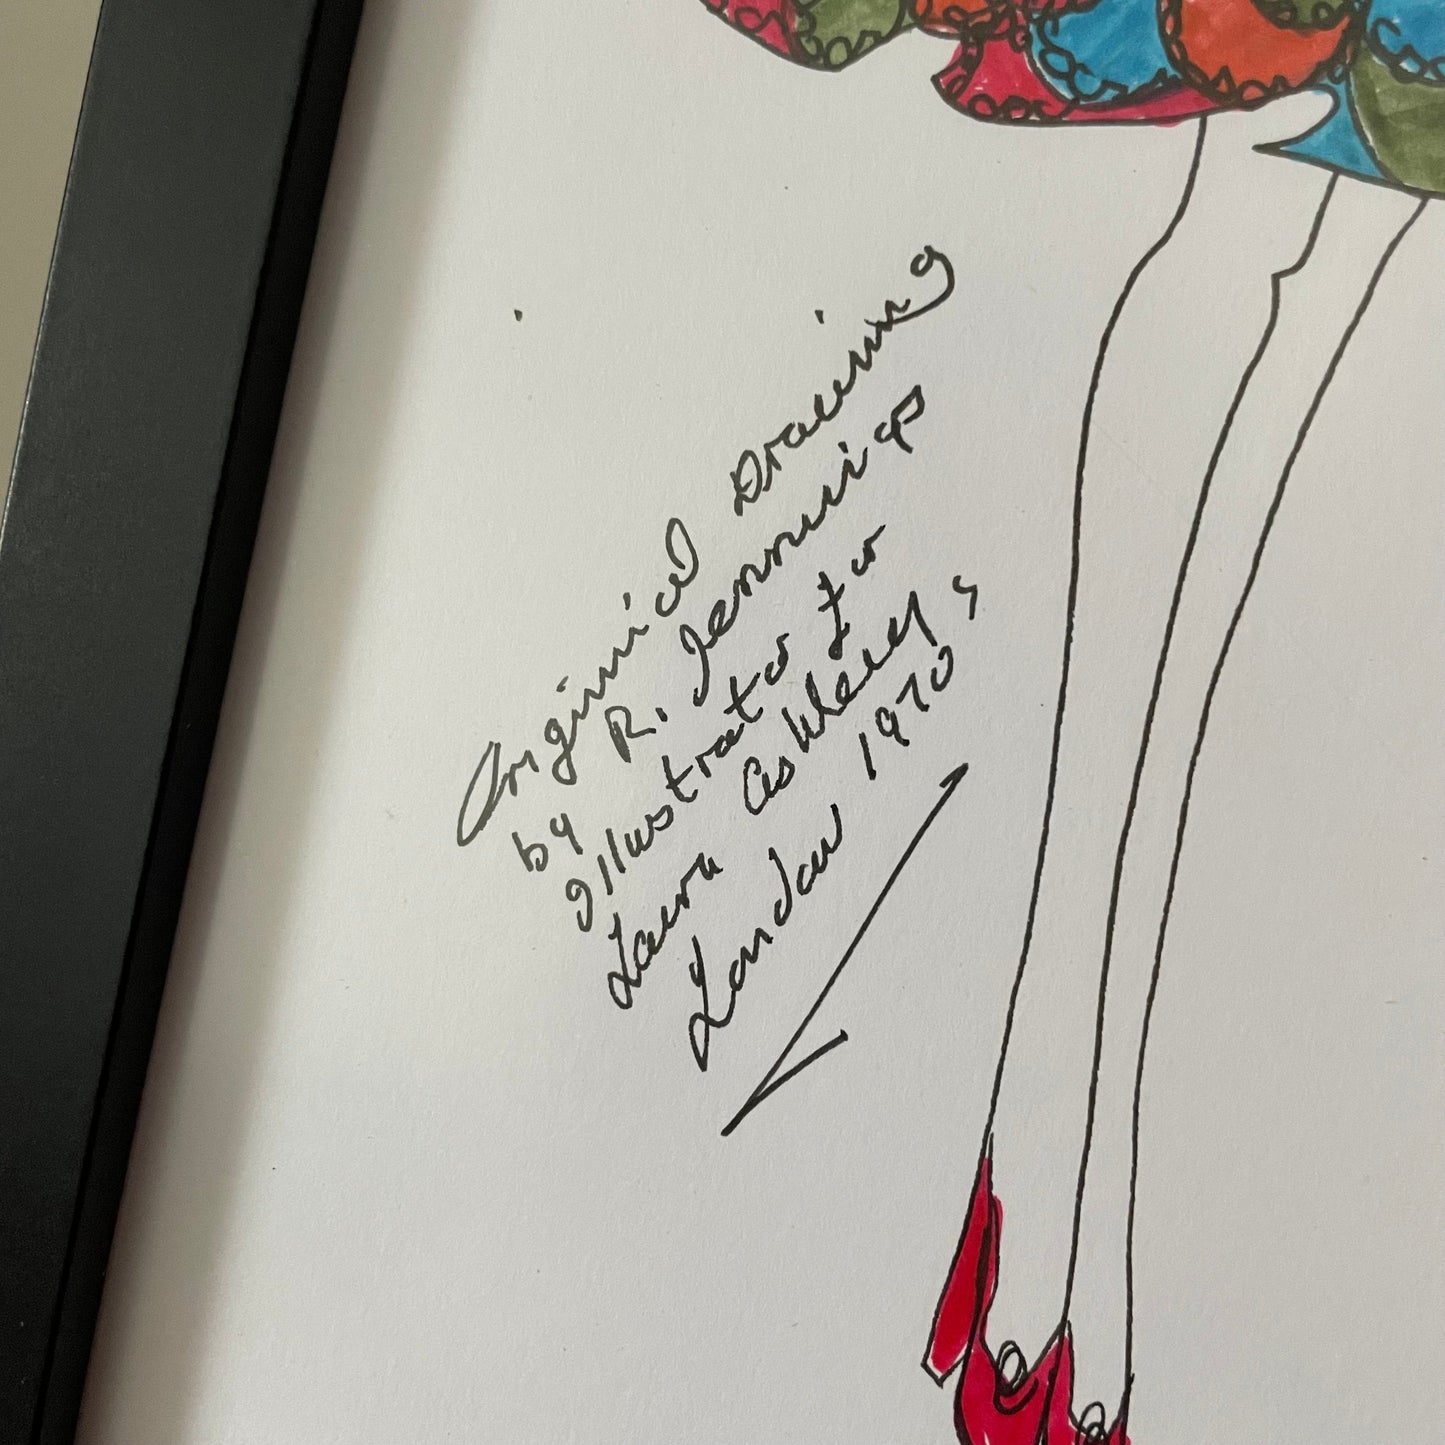 Original Drawing
by R. Jennings
Illustrator for
Laura Ashley's
London 1970